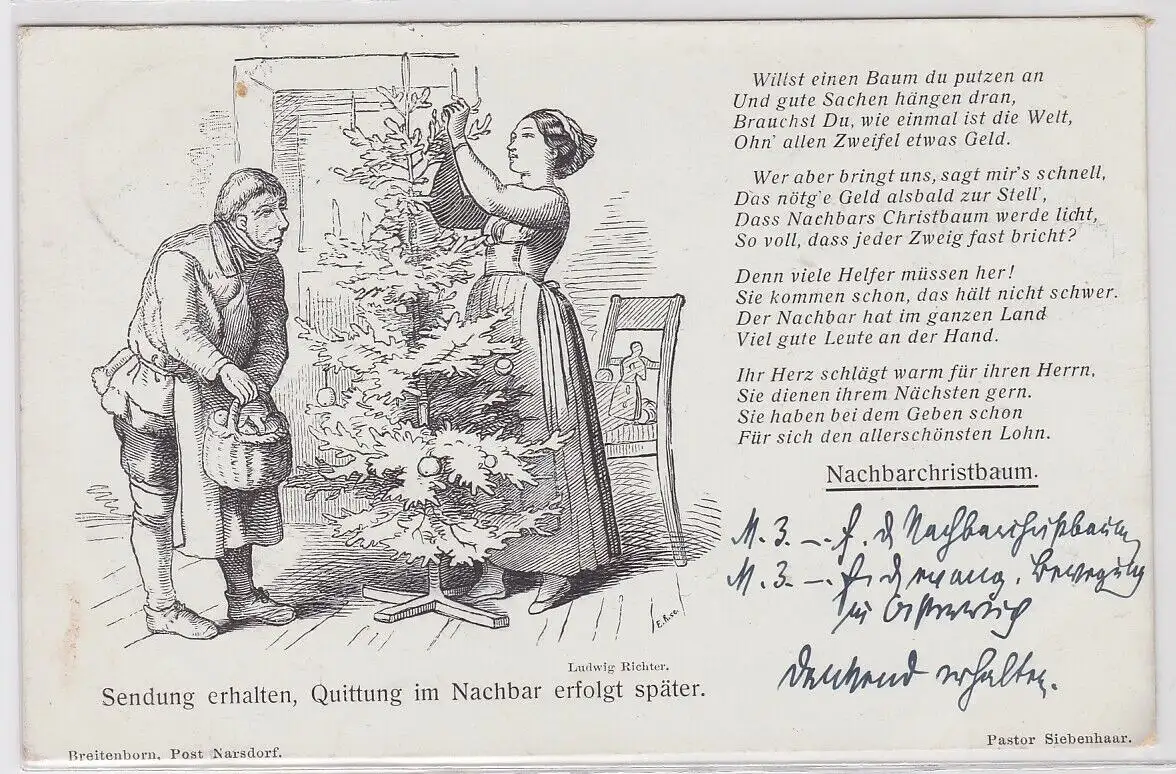 Willst einen Baum du putzen an
Und gute Sachen hängen dran,
Brauchst Du, wie einmal ist die Welt,
Ohn' allen Zweifel etwas Geld.
Wer aber bringt uns, sagt mir's schnell,
Das nötg'e Geld alsbald zur Stell',
Dass Nachbars Christbaum werde licht,
So voll, dass jeder Zweig fast bricht?
Denn viele Helfer müssen her!
Sie kommen schon, das hält nicht schwer.
Der Nachbar hat im ganzen Land
Viel gute Leute an der Hand.
Ihr Herz schlägt warm für ihren Herrn,
Sie dienen ihrem Nächsten gern.
Sie haben bei dem Geben schon
Für sich den allerschönsten Lohn.
Nachbarchristbaum.
M. 3. –. f. d Nachbarchristbaum
M. 3. –. f. d evang. Bewegung
in Österreich
dankend erhalten.
Ludwig Richter.
Sendung erhalten, Quittung im Nachbar erfolgt später.
Breitenborn, Post Narsdorf.
Pastor Siebenhaar.